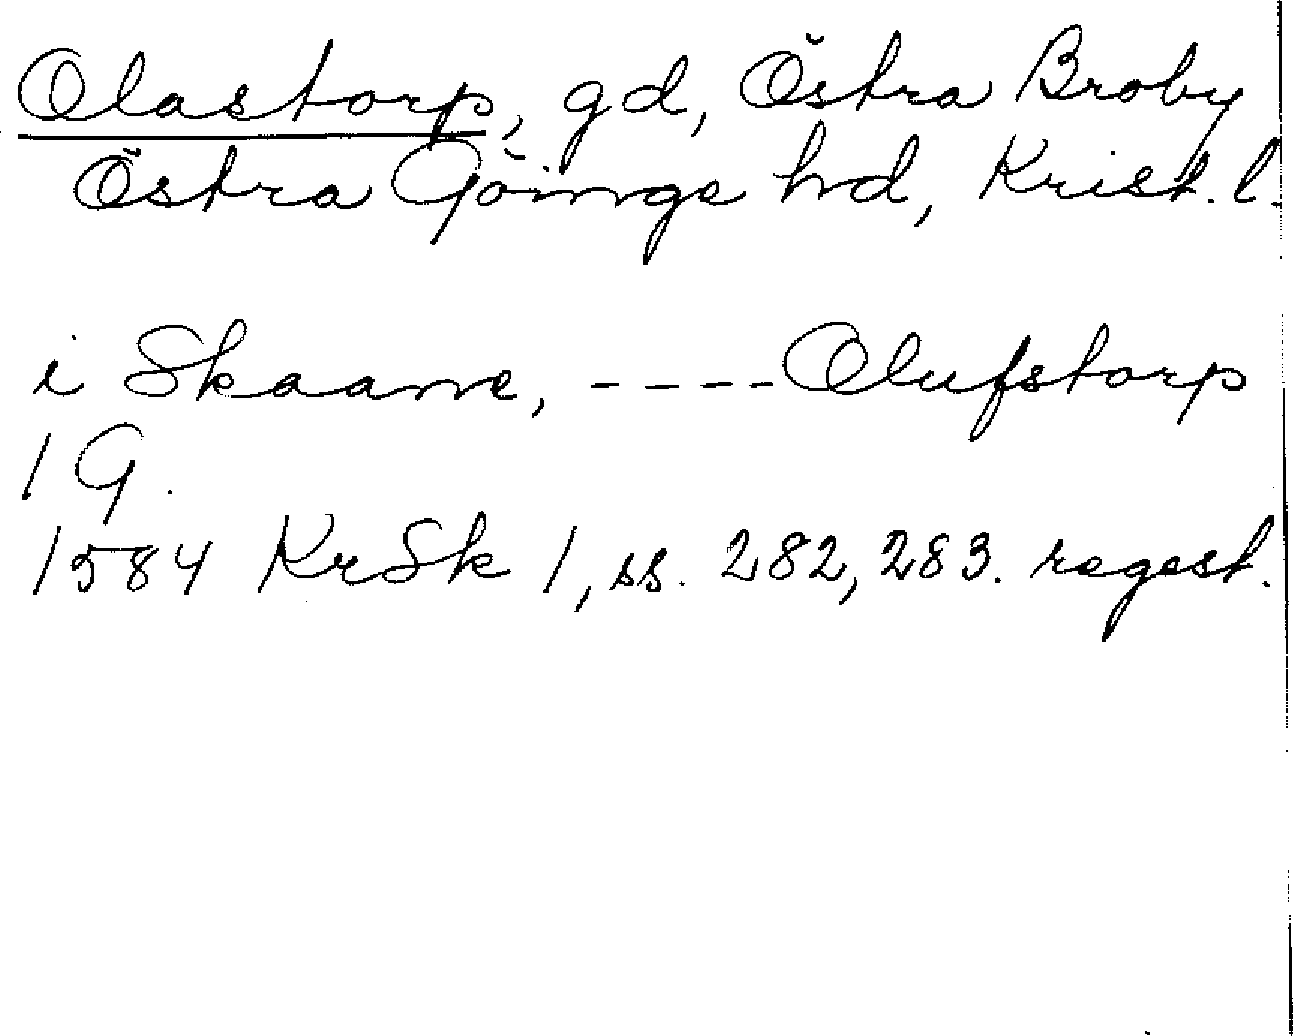 Olastorp, gd, Östra Broby
Östra Göinge hd, Krist. l.
i Skaane, ----Olufstorp
1 G.
1584 KrSk 1, ss. 282, 283. regest.